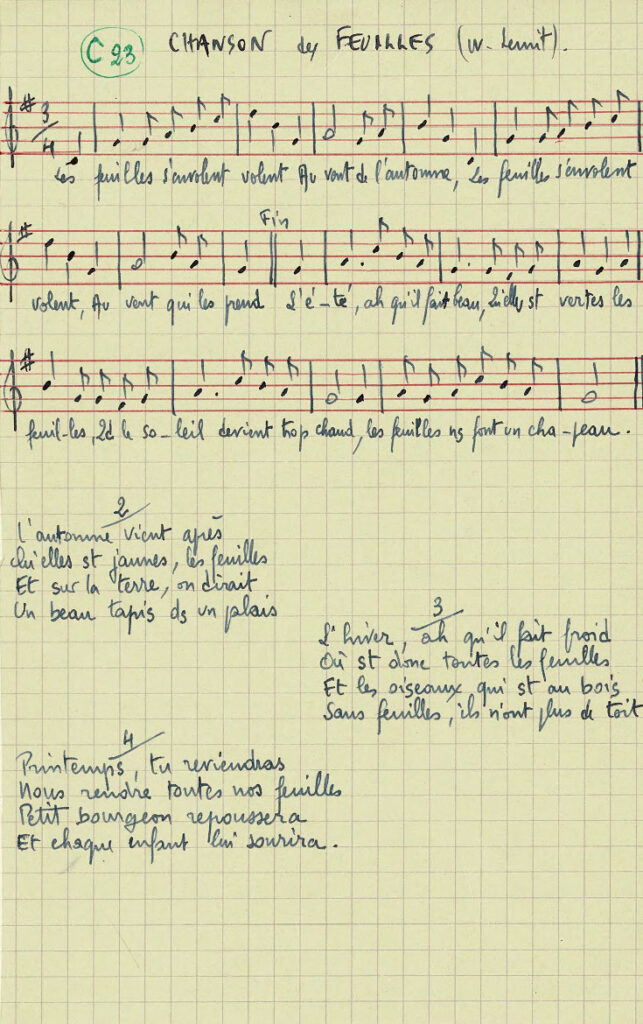 C 23
CHANSON des FEUILLES (W. Lemit).
3
4
Les feuilles s'envolent volent Au vent de l'automne, Les feuilles s'envolent
Fin
volent, Au vent qui les prend L'é-té, ah qu'il fait beau, Qu'elles st vertes les
feuil-les, Qd le so-leil devient trop chaud, les feuilles ns font un cha-peau.
2
L'automne vient après
Qu'elles st jaunes, les feuilles
Et sur la terre, on dirait
Un beau tapis ds un palais
3
L'hiver, ah qu'il fait froid
Où st donc toutes les feuilles
Et les oiseaux qui st au bois
Sans feuilles, ils n'ont plus de toit
4
Printemps, tu reviendras
Nous rendre toutes nos feuilles
Petit bourgeon repoussera
Et chaque enfant lui sourira.